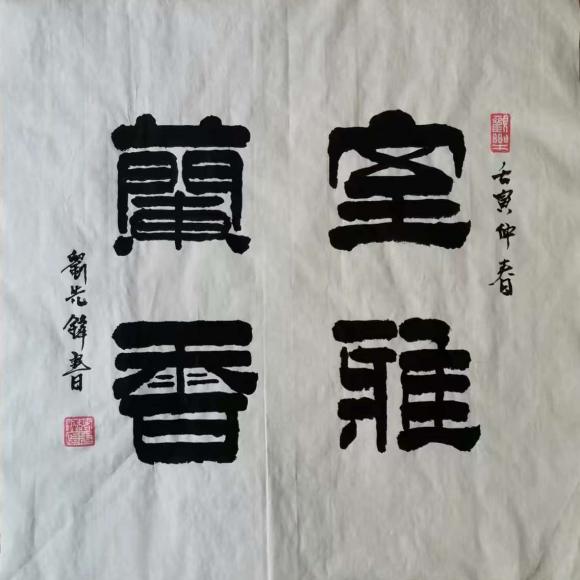 壬寅仲春
室雅
蘭香
劉先鋒書